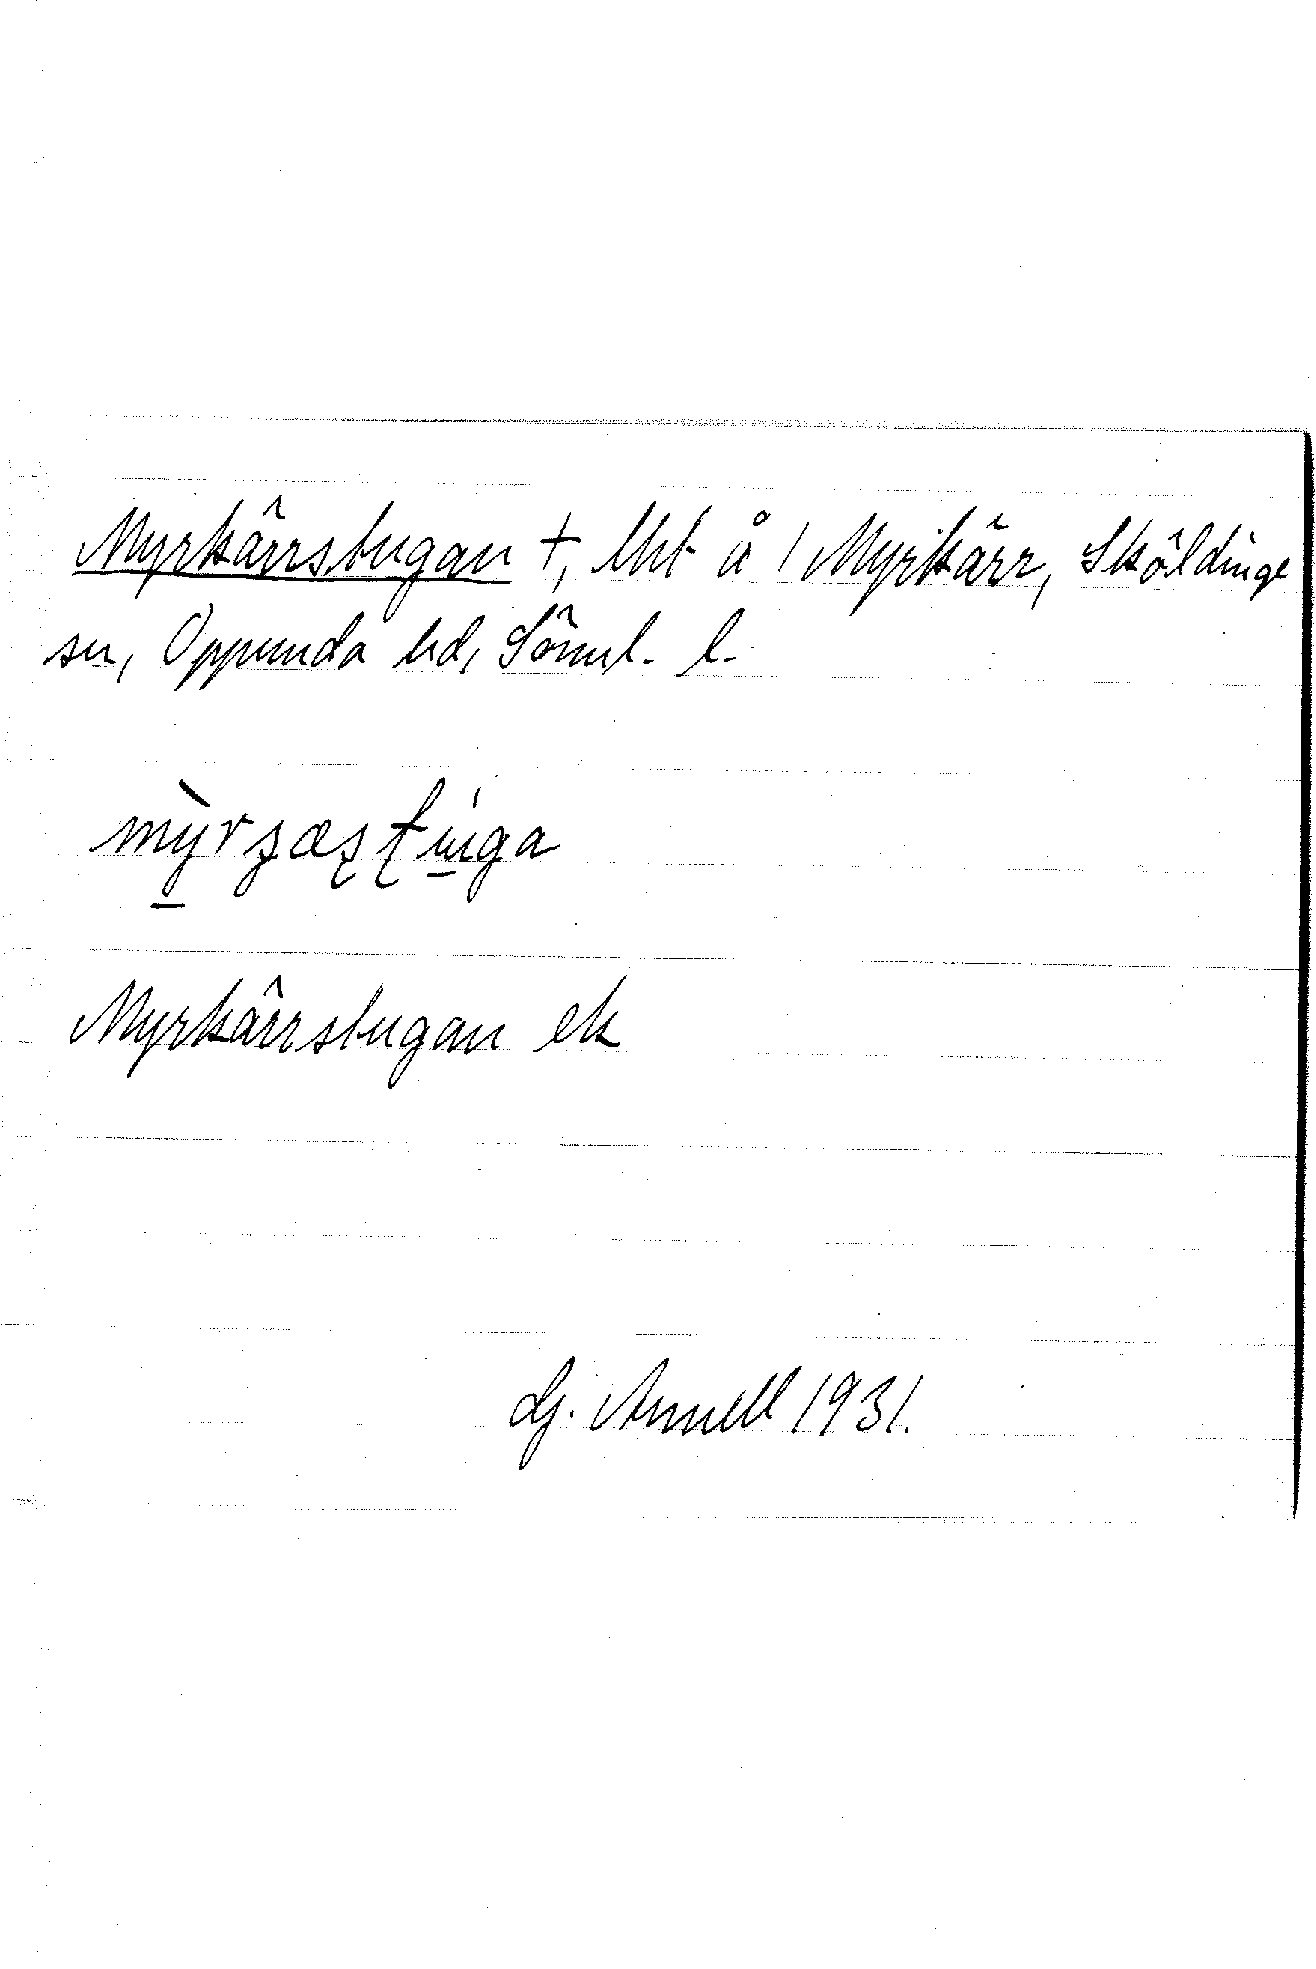 Myrkärrstugan †, lht å 1 Myrkärr, Sköldinge
sn, Oppunda hd, Söml. l.
Myrkärrstugan ek
Hj. Annell 1931.